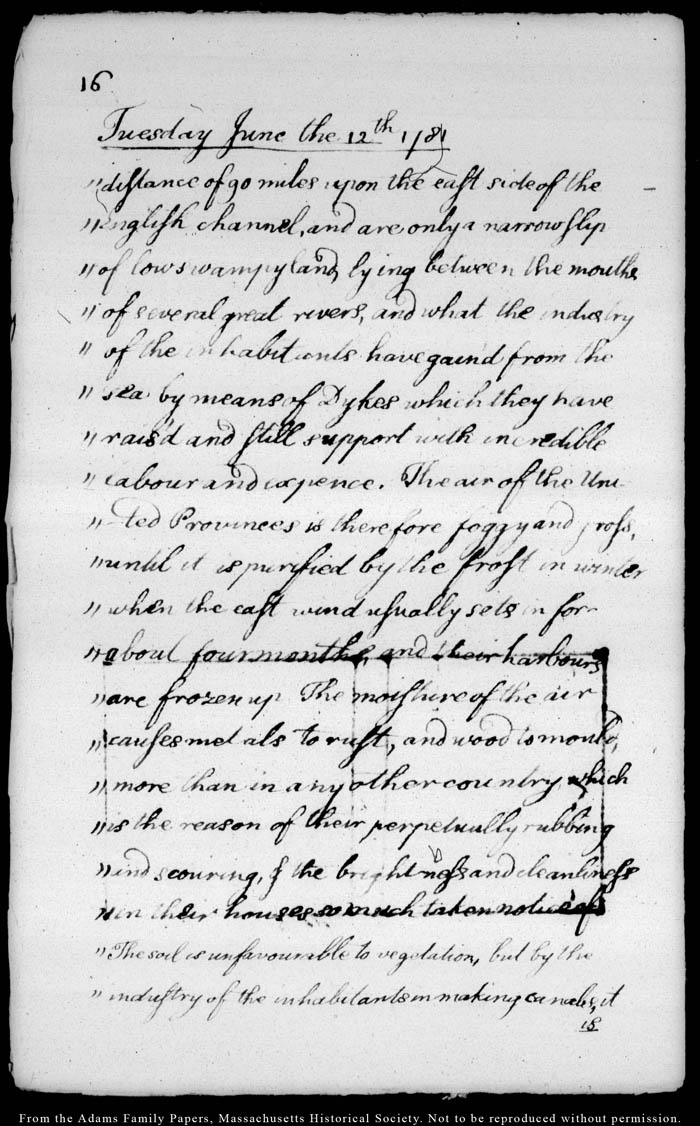 16
Tuesday June the 12th 1781
"distance of 90 miles upon the east side of the
"English channel, and are only a narrow slip
"of low swampy land, lying between the mouths
"of several great rivers, and what the industry
"of the inhabitants have gain'd from the
"sea by means of Dykes which they have
"rais'd and still support with incredible
"labour and expence. The air of the Uni-
"-ted Provinces is therefore foggy and gross,
"until it is purified by the frost in winter
"when the east wind usually sets in for
"about four months, and their harbours
"are frozen up The moisture of the air
"causes metals to rust, and wood to mould,
"more than in any other country which
"is the reason of their perpetually rubbing
"and scouring, & the brightness and cleanliness
"in their houses so much taken notice of
"The soil is unfavourable to vegetation, but by the
"industry of the inhabitants in making canals, it
is
From the Adams Family Papers, Massachusetts Historical Society. Not to be reproduced without permission.